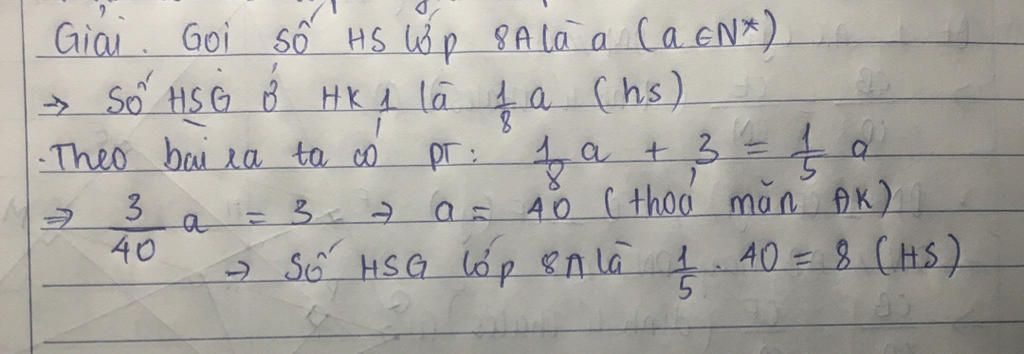 Giải. Gọi số HS lớp 8A là a (a ∈ N*)
→ Số HSG ở HK1 là 1/8 a (hs)
. Theo bài ra ta có PT: 1/8 a + 3 = 1/5 a
⇒ 3/40 a = 3 → a = 40 (thoả mãn ĐK)
→ Số HSG lớp 8A là 1/5 . 40 = 8 (HS)